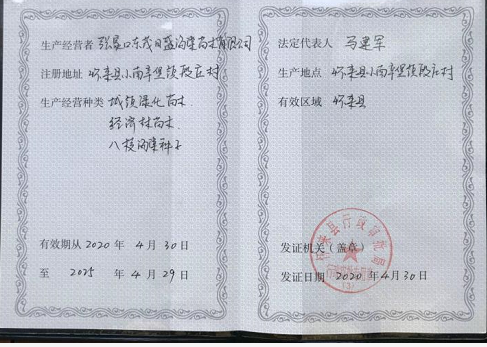 生产经营者 张家口东茂日盛海棠苗木有限公司
注册地址 怀来县小南辛堡镇殷庄村
生产经营种类 城镇绿化苗木
经济林苗木
八棱海棠种子
有效期从 2020 年 4 月 30 日
至 2025 年 4 月 29 日
法定代表人 马建军
生产地点 怀来县小南辛堡镇殷庄村
有效区域 怀来县
怀来县行政审批局
发证机关（盖章）
发证日期 2020 年 4 月 30 日